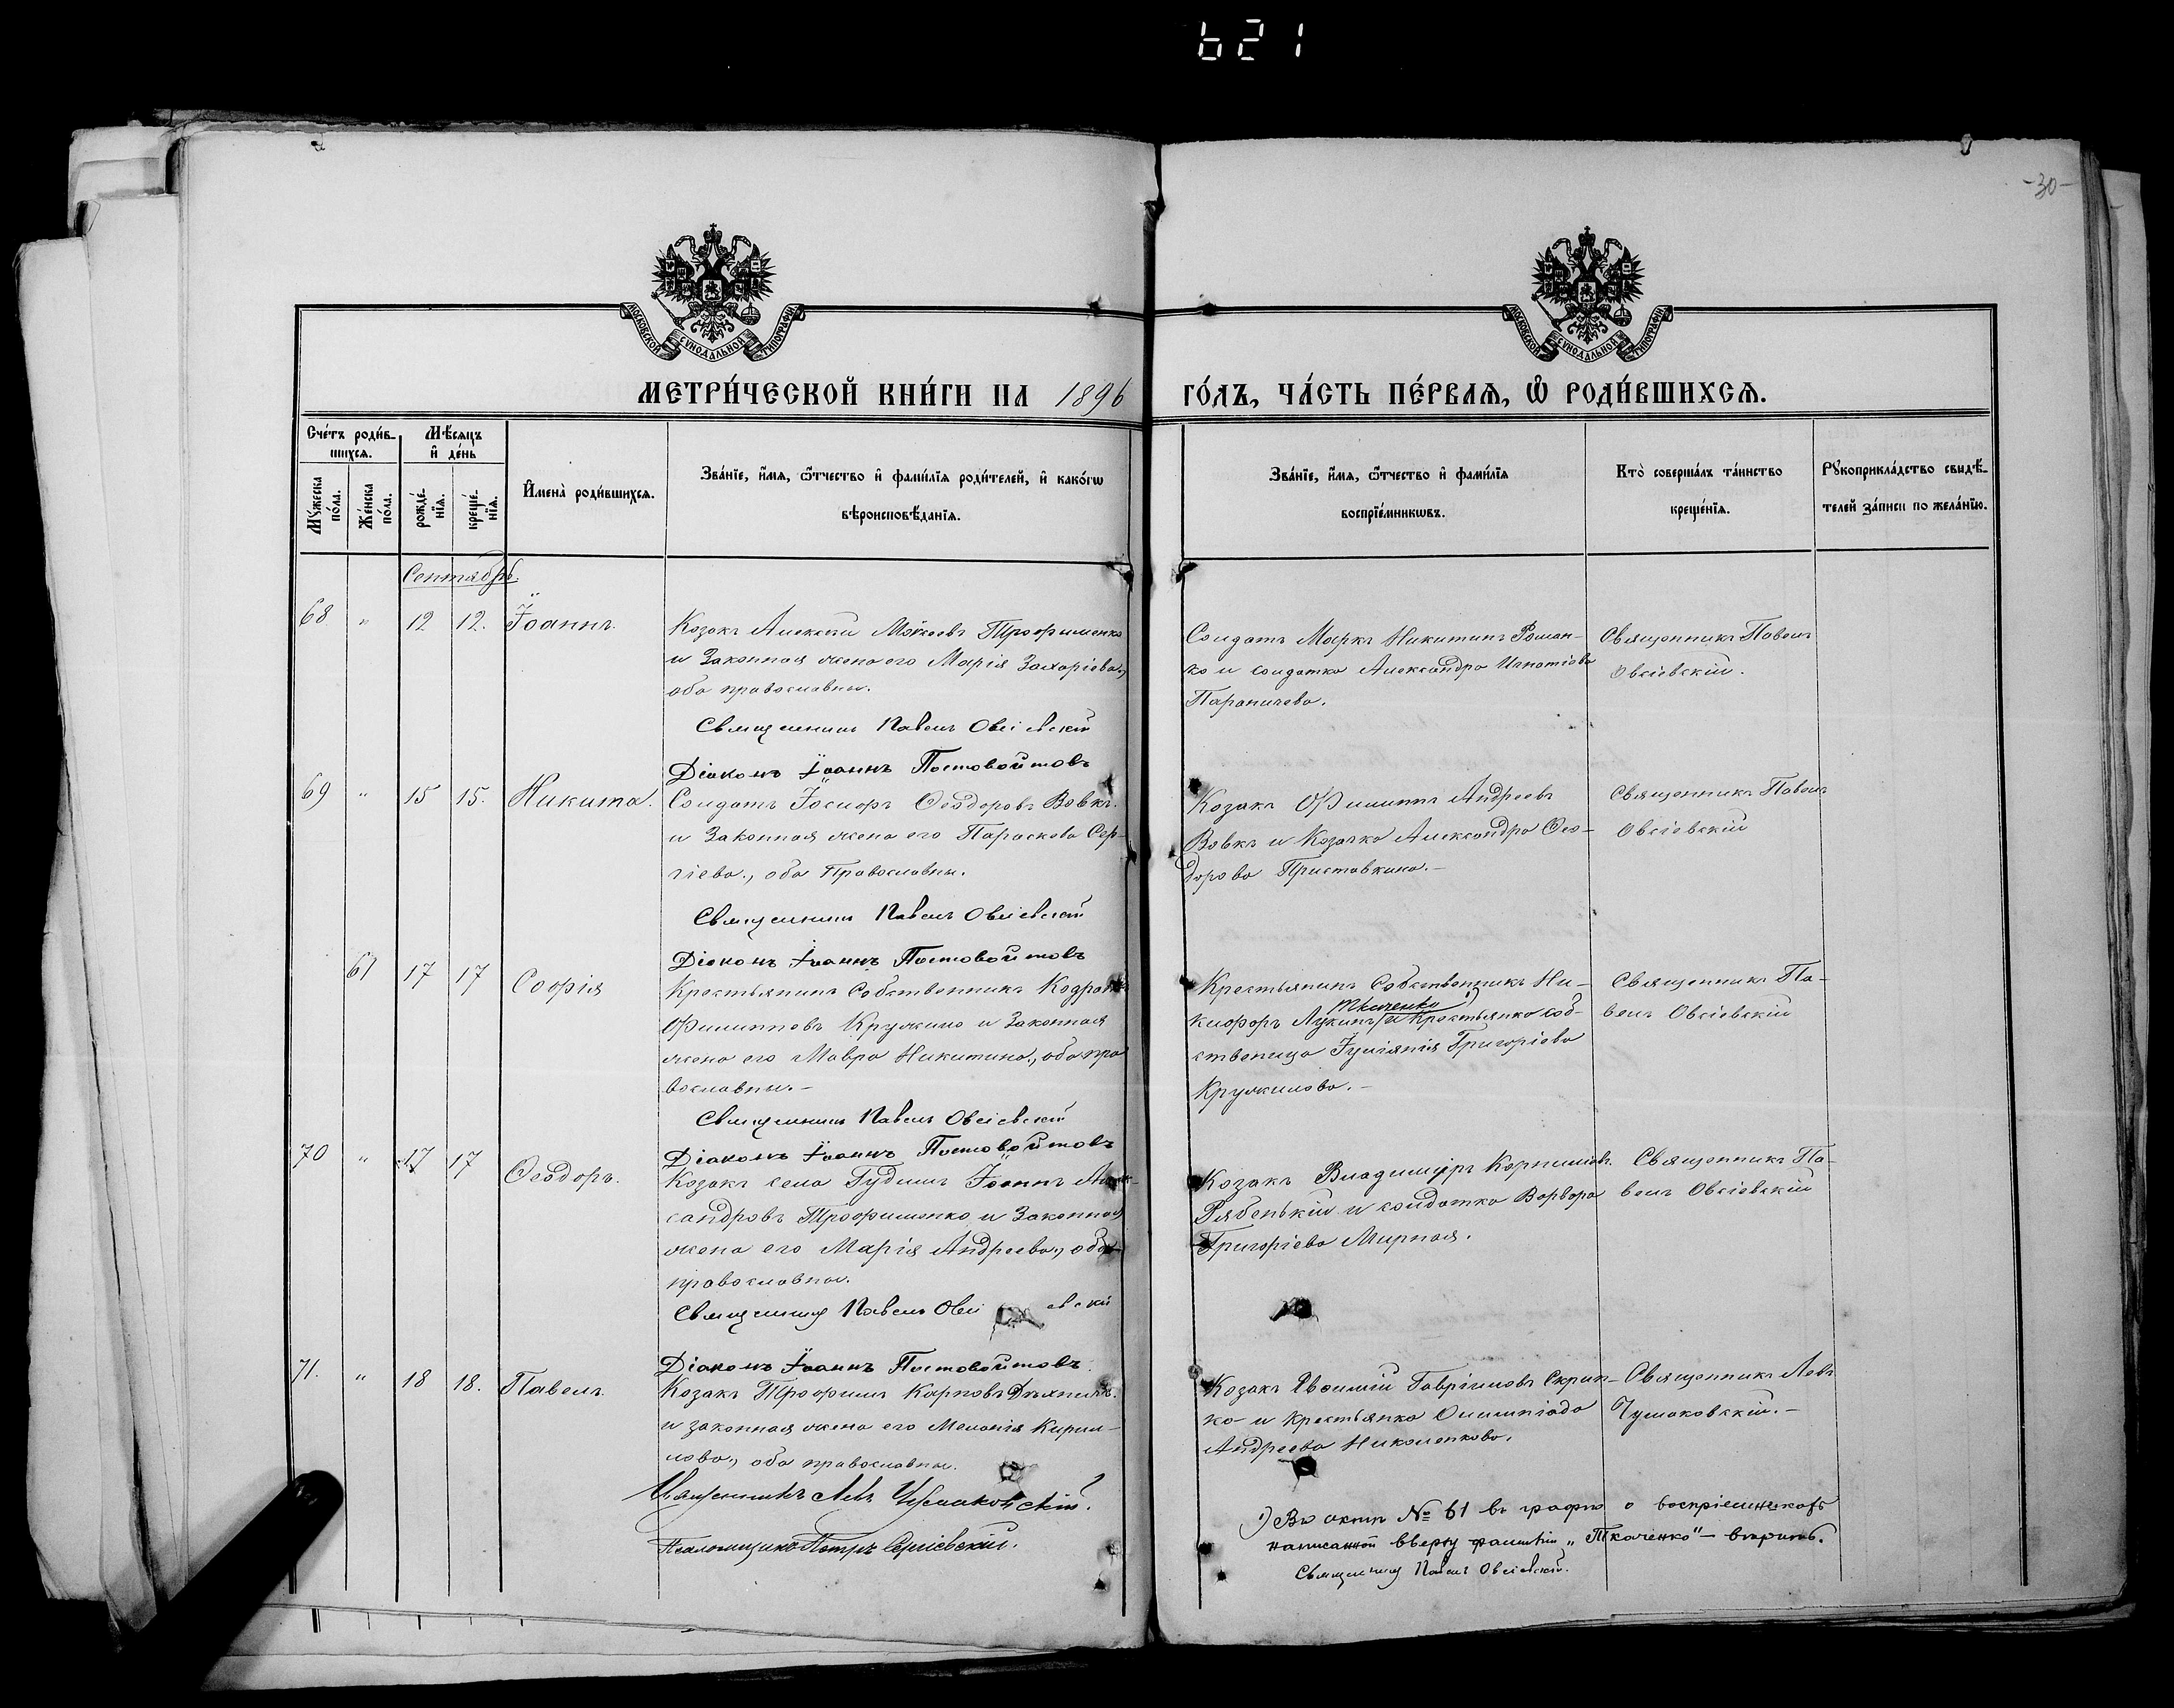 621
-30-
МОСКОВСКОЙ СѴНОДАЛЬНОЙ ТИПОГРАФІИ
МОСКОВСКОЙ СѴНОДАЛЬНОЙ ТИПОГРАФІИ
МЕТРИ́ЧЕСКОЙ КНИ́ГИ НА 1896 ГО́ДЪ, ЧА́СТЬ ПЕ́РВАѦ, Ѽ РОДИ́ВШИХСѦ.
Сче́тъ роди́в-
шихсѧ.
Мꙋ́жеска по́ла.
Же́нска по́ла.
Мѣ́сѧцъ
и҆ де́нь
рожде́-
нїѧ.
креще́-
нїѧ.
И҆мена̀ роди́вшихсѧ.
Зва́нїе, и҆́мѧ, ѻ҆́тчество и҆ фами́лїѧ роди́телей, и҆ како́гѡ
вѣроисповѣ́данїѧ.
Зва́нїе, и҆́мѧ, ѻ҆́тчество и҆ фами́лїѧ
воспрїе́мникѡвъ.
Кто̀ соверша́лъ та́инство
креще́нїѧ.
Рꙋкоприкла́дство свидѣ́-
телей за́писи по жела́нїю.
Сентябрь.
68 " 12 12. Іоаннъ.
Козакъ Алексѣй Моѵсеевъ Трофименко
и Законная жена его Марія Захаріева,
оба православны.
Священникъ Павелъ Овсіевскій
Діаконъ Іоаннъ Постовойтовъ
Солдатъ Маркъ Никитинъ Роман-
ко и солдатка Александра Игнатіева
Параничева.
Священникъ Павелъ
Овсіевскій.
69 " 15 15. Никита.
Солдатъ Іосифъ Ѳеодоровъ Вовкъ.
и Законная жена его Параскева Сер-
гіева, оба Православны.
Священникъ Павелъ Овсіевскій
Діаконъ Іоаннъ Постовойтовъ
Козакъ Филиппъ Андреевъ
Вовкъ и Козачка Александра Ѳео-
дорова Приставкина.-
Священникъ Павелъ
Овсіевскій
61 17 17 Софія
Крестьянинъ Собственникъ Кодратъ
Филипповъ Кружило и Законная
жена его Мавра Никитина, оба пра
вославны.-
Священникъ Павелъ Овсіевскій
Діаконъ Іоаннъ Постовойтовъ
Крестьянинъ Собственникъ Ни-
Ткаченко 1)
кифоръ Лукинъ и Крестьянка соб-
ственица Іуліанія Григоріева
Кружилова.-
Священникъ Па-
велъ Овсіевскій
70 " 17 17 Ѳеодоръ.
Козакъ села Гудимъ Іоаннъ Алек-
сандровъ Трофименко и Законная
жена его Марія Андреева, оба
православны.
Священникъ Павелъ Овсіевскій
Діаконъ Іоаннъ Постовойтовъ.
Козакъ Владиміръ Корниліевъ
Рябенькій и солдатка Варвара
Григоріева Мирная.
Священникъ Па-
велъ Овсіевскій
71. " 18 18. Павелъ.
Козакъ Трофимъ Карповъ
и законная жена его Меланія Кирил-
лова, оба православны.
Священникъ Левъ Чумаковскій.
Псаломщикъ Петръ Сергіевскій.
Козакъ Евѳимій Гавріиловъ Скрип-
ко и крестьянка Олимпіада
Андреева Николенкова.
Священникъ Левъ
Чумаковскій.-
1) Въ актѣ № 61 въ графѣ о воспріемникахъ
написанной вверху фамиліи „Ткаченко"- вѣрить.
Священникъ Павелъ Овсіевскій.